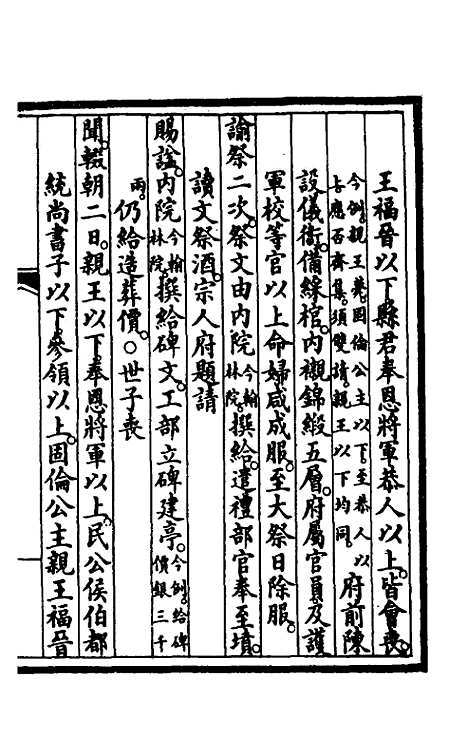 王福晉以下。縣君奉恩將軍恭人以上。皆會喪。
今例。親王薨。固倫公主以下。至恭人以上。應否齊集。須雙請。親王以下均同。府前陳
設儀衛。備綵棺。內襯錦緞五層。府屬官員及護
軍校等官以上命婦咸成服。至大祭日除服。
諭祭二次。祭文由內院今翰林院。撰給。遣禮部官奉至墳。
讀文祭酒。宗人府題請
賜諡。內院今翰林院。撰給碑文。工部立碑建亭。今例。給碑價銀三千
兩。仍給造葬價。○世子喪
聞。輟朝二日。親王以下。奉恩將軍以上。民公侯伯都
統尚書子以下。參領以上。固倫公主親王福晉